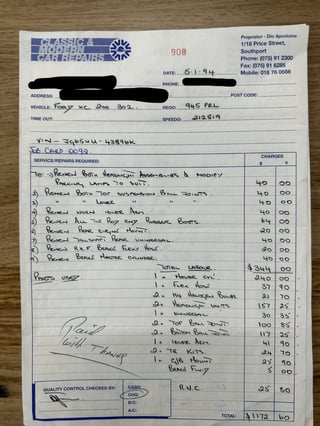 CLASSIC & MODERN CAR REPAIRS
Proprietor - Dio Apostolos
1/18 Price Street, Southport
Phone: (075) 91 2300
Fax: (075) 91 6285
Mobile: 018 76 0556
908
DATE: 5.1.94
PHONE:
ADDRESS:
POST CODE:
VEHICLE: FORD XC 2DR 302. REGO: 945 PRL
TIME OUT: SPEEDO: 212519
VIN -
JOB CARD 0092.
SERVICE/REPAIRS REQUIRED CHARGES
$ ¢
TO:- RENEW BOTH HEADLIGHT ASSEMBLIES & MODIFY
PARKING LAMPS TO SUIT. 40 00
2) RENEW BOTH TOP SUSPENSION BALL JOINTS. 40 00
3) " " LOWER " " " 40 00
4) RENEW WORN IDLER ARM. 40 00
5) RENEW ALL TIE ROD END RUBBER BOOTS. 64 00
6) RENEW REAR ENGINE MOUNT. 20 00
7) RENEW TAILSHAFT REAR UNIVERSAL. 40 00
8) RENEW R.H.F BRAKE FLEXY HOSE. 20 00
9) RENEW BRAKE MASTER CYLINDER. 40 00
TOTAL LABOUR. $344 00
PARTS USED 1 x MASTER CYL 240 00
1 x FLEX HOSE 37 90
2 x H4 HALOGEN BULBS 21 70
2 x HEADLIGHT UNITS 157 25
1 x UNIVERSAL 30 35
2 x TOP BALL JOINT 100 85
2 x BOTTOM BALL JOINT 117 25
1 x IDLER ARM 41 90
2 x TR KITS 24 70
1 x G/B MOUNT 25 90
BRAKE FLUID 5 00
Paid with Thanks
QUALITY CONTROL CHECKED BY:
CASH:
CHQ:
B/C:
A/C:
25 80
TOTAL: $1172 60